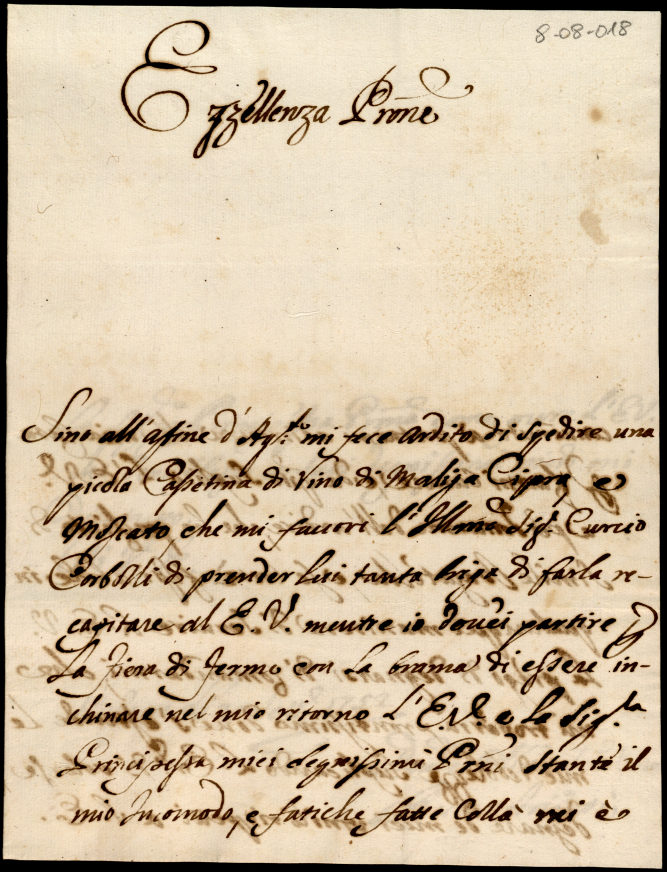 8-08-018
Ezzellenza Prone
Sino all'afine d'Ag:to mi fece ardito di spedire una
picola Casetina di Vino di Maliga Cipra, e
Moscato, che mi favori l'Illmo Sig.r Curcio
Corbolli di prender Lui tanta briga di farla re-
capitare al E. V. mentre io dovei partire p
La fiera di fermo con La brama di essere in-
chinare nel mio ritorno L'E.V. e La Sig.la
Principessa miei degnissimi Prni stante il
mio Incomodo, e fatiche fatte Collà mi è